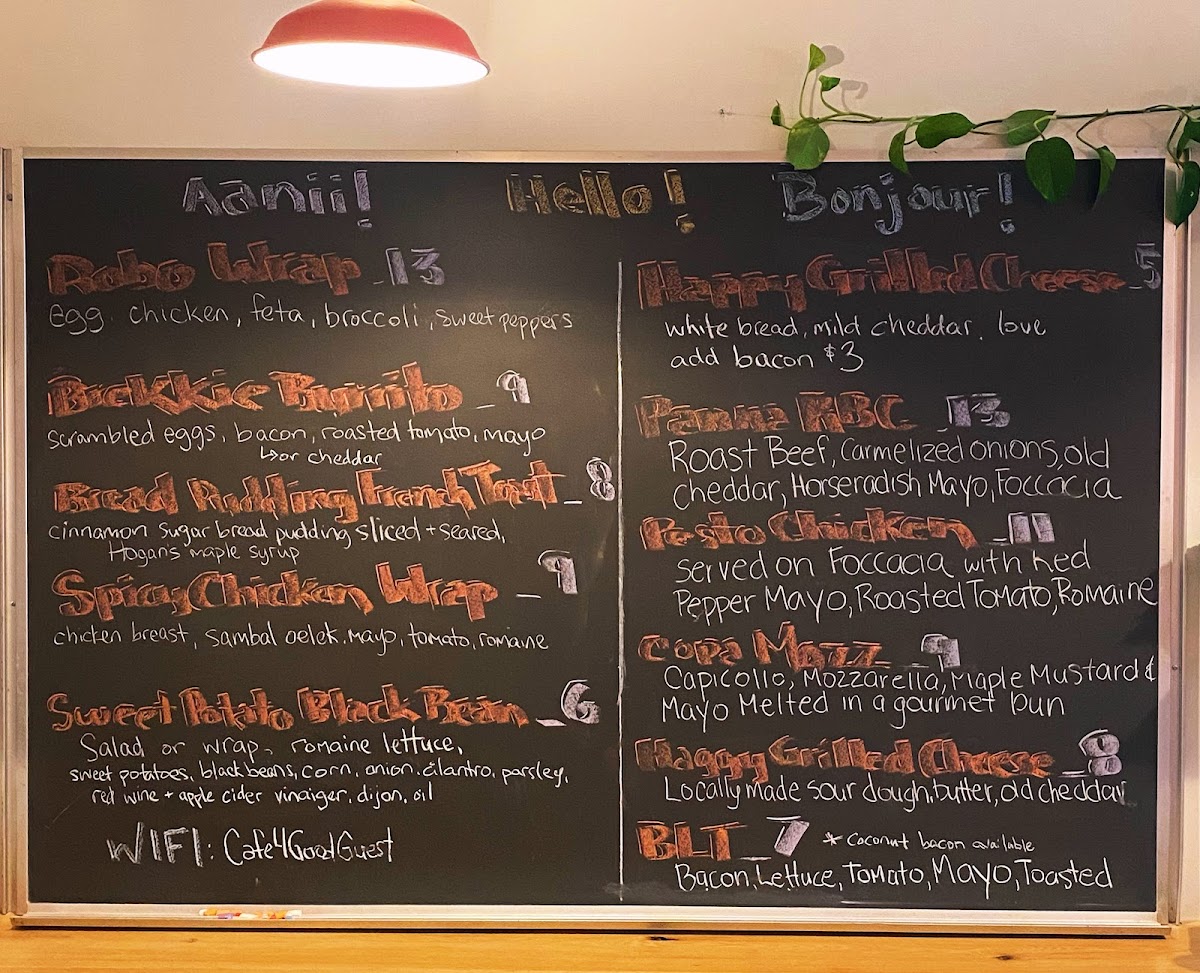 Aanii! Hello! Bonjour!
Robo Wrap _13
egg chicken, feta, broccoli, sweet peppers
Bickkie Burrito _9
scrambled eggs, bacon, roasted tomato, mayo
↳or cheddar
Bread Pudding French Toast _8
cinnamon sugar bread pudding sliced + seared,
Hogan's maple syrup
Spicy Chicken Wrap _9
chicken breast, sambal oelek, mayo, tomato, romaine
Sweet Potato Black Bean _6
Salad or wrap, romaine lettuce,
sweet potatoes, black beans, corn, onion, cilantro, parsley,
red wine + apple cider vinaiger, dijon, oil
WIFI: Cafe4GoodGuest
Happy Grilled Cheese _5
white bread, mild cheddar, love
add bacon $3
RBC _13
Roast Beef, Carmelized onions, old
cheddar, Horseradish Mayo, Foccacia
Pesto Chicken _11
served on Foccacia with Red
Pepper Mayo, Roasted Tomato, Romaine
Copa Mozz _9
Capicollo, Mozzarella, Maple Mustard &
Mayo Melted in a gourmet bun
Grilled Cheese _8
Locally made sour dough, butter, old cheddar
BLT _7 * Coconut bacon available
Bacon, Lettuce, Tomato, Mayo, Toasted